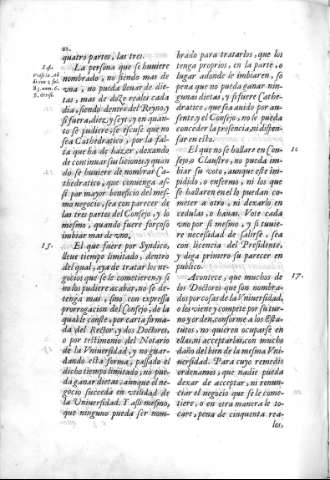 quatro partes, las tres.
La persona que se huuiere
nombrado, no siendo mas de
vna, no pueda lleuar de die-
tas, mas de doze reales cada
dia, siendo dentro del Reyno, y
si fuera, diez y seys: y en quan-
to se pudiere, se escuse que no
sea Cathedratico, por la fal-
ta que ha de hazer, dexando
de continuar sus liciones: y quan
do se huuiere de nombrar Ca-
thedratico, que conuenga as-
si por mayor beneficio del mes-
mo negocio, sea con parecer de
las tres partes del Consejo, y lo
mesmo, quando fuere forçoso
imbiar mas de vno.
15.
El que fuere por Syndico,
lleue tiempo limitado, dentro
del qual, aya de tratar los ne-
gocios que se le cometieren, y si
no los pudiere acabar, no se de-
tenga mas, sino con expressa
prorrogacion del Consejo, de la
qual le conste, por carta firma-
da del Rector, y dos Doctores,
o por testimonio del Notario
de la Vniuersidad, y no guar-
dando esta forma, passado el
dicho tiempo limitado, no pue-
da ganar dietas, aunque el ne-
gocio suceda en vtilidad de
la Vniuersidad. Y assi mesmo,
que ninguno pueda ser nom-
brado para tratarlos, que los
tenga proprios, en la parte, o
lugar adonde le imbiaren, so
pena que no pueda ganar nin-
gunas dietas, y si fuere Cathe-
dratico, quede auido por au-
sente, y el Consejo, no le pueda
conceder la presencia, ni dispen-
sar en esto.
El que no se hallare en Con-
sejo, o Claustro, no pueda im-
biar su voto, aunque este im-
pedido, o enfermo, ni los que
se hallaren en el lo puedan co-
meter a otro, ni dexarlo en
cedulas, o hauas. Vote cada
vno por si mesmo, y si tuuie-
re necessidad de salirse, sea
con licencia del Presidente,
y diga primero su parecer en
publico.
17.
Acontece, que muchos de
los Doctores que son nombra-
dos por cosas de la Vniuersidad,
o los viene y compete por su tur-
no y orden, conforme a los Esta-
tutos, no quieren ocuparse en
ellas, ni acceptarlas, con mucho
daño del bien de la mesma Vni-
uersidad. Para cuyo remedio
ordenamos, que nadie pueda
dexar de acceptar, ni renun-
tiar el negocio que se le come-
tiere, o en otra manera le to-
care, pena de cinquenta rea-
les,